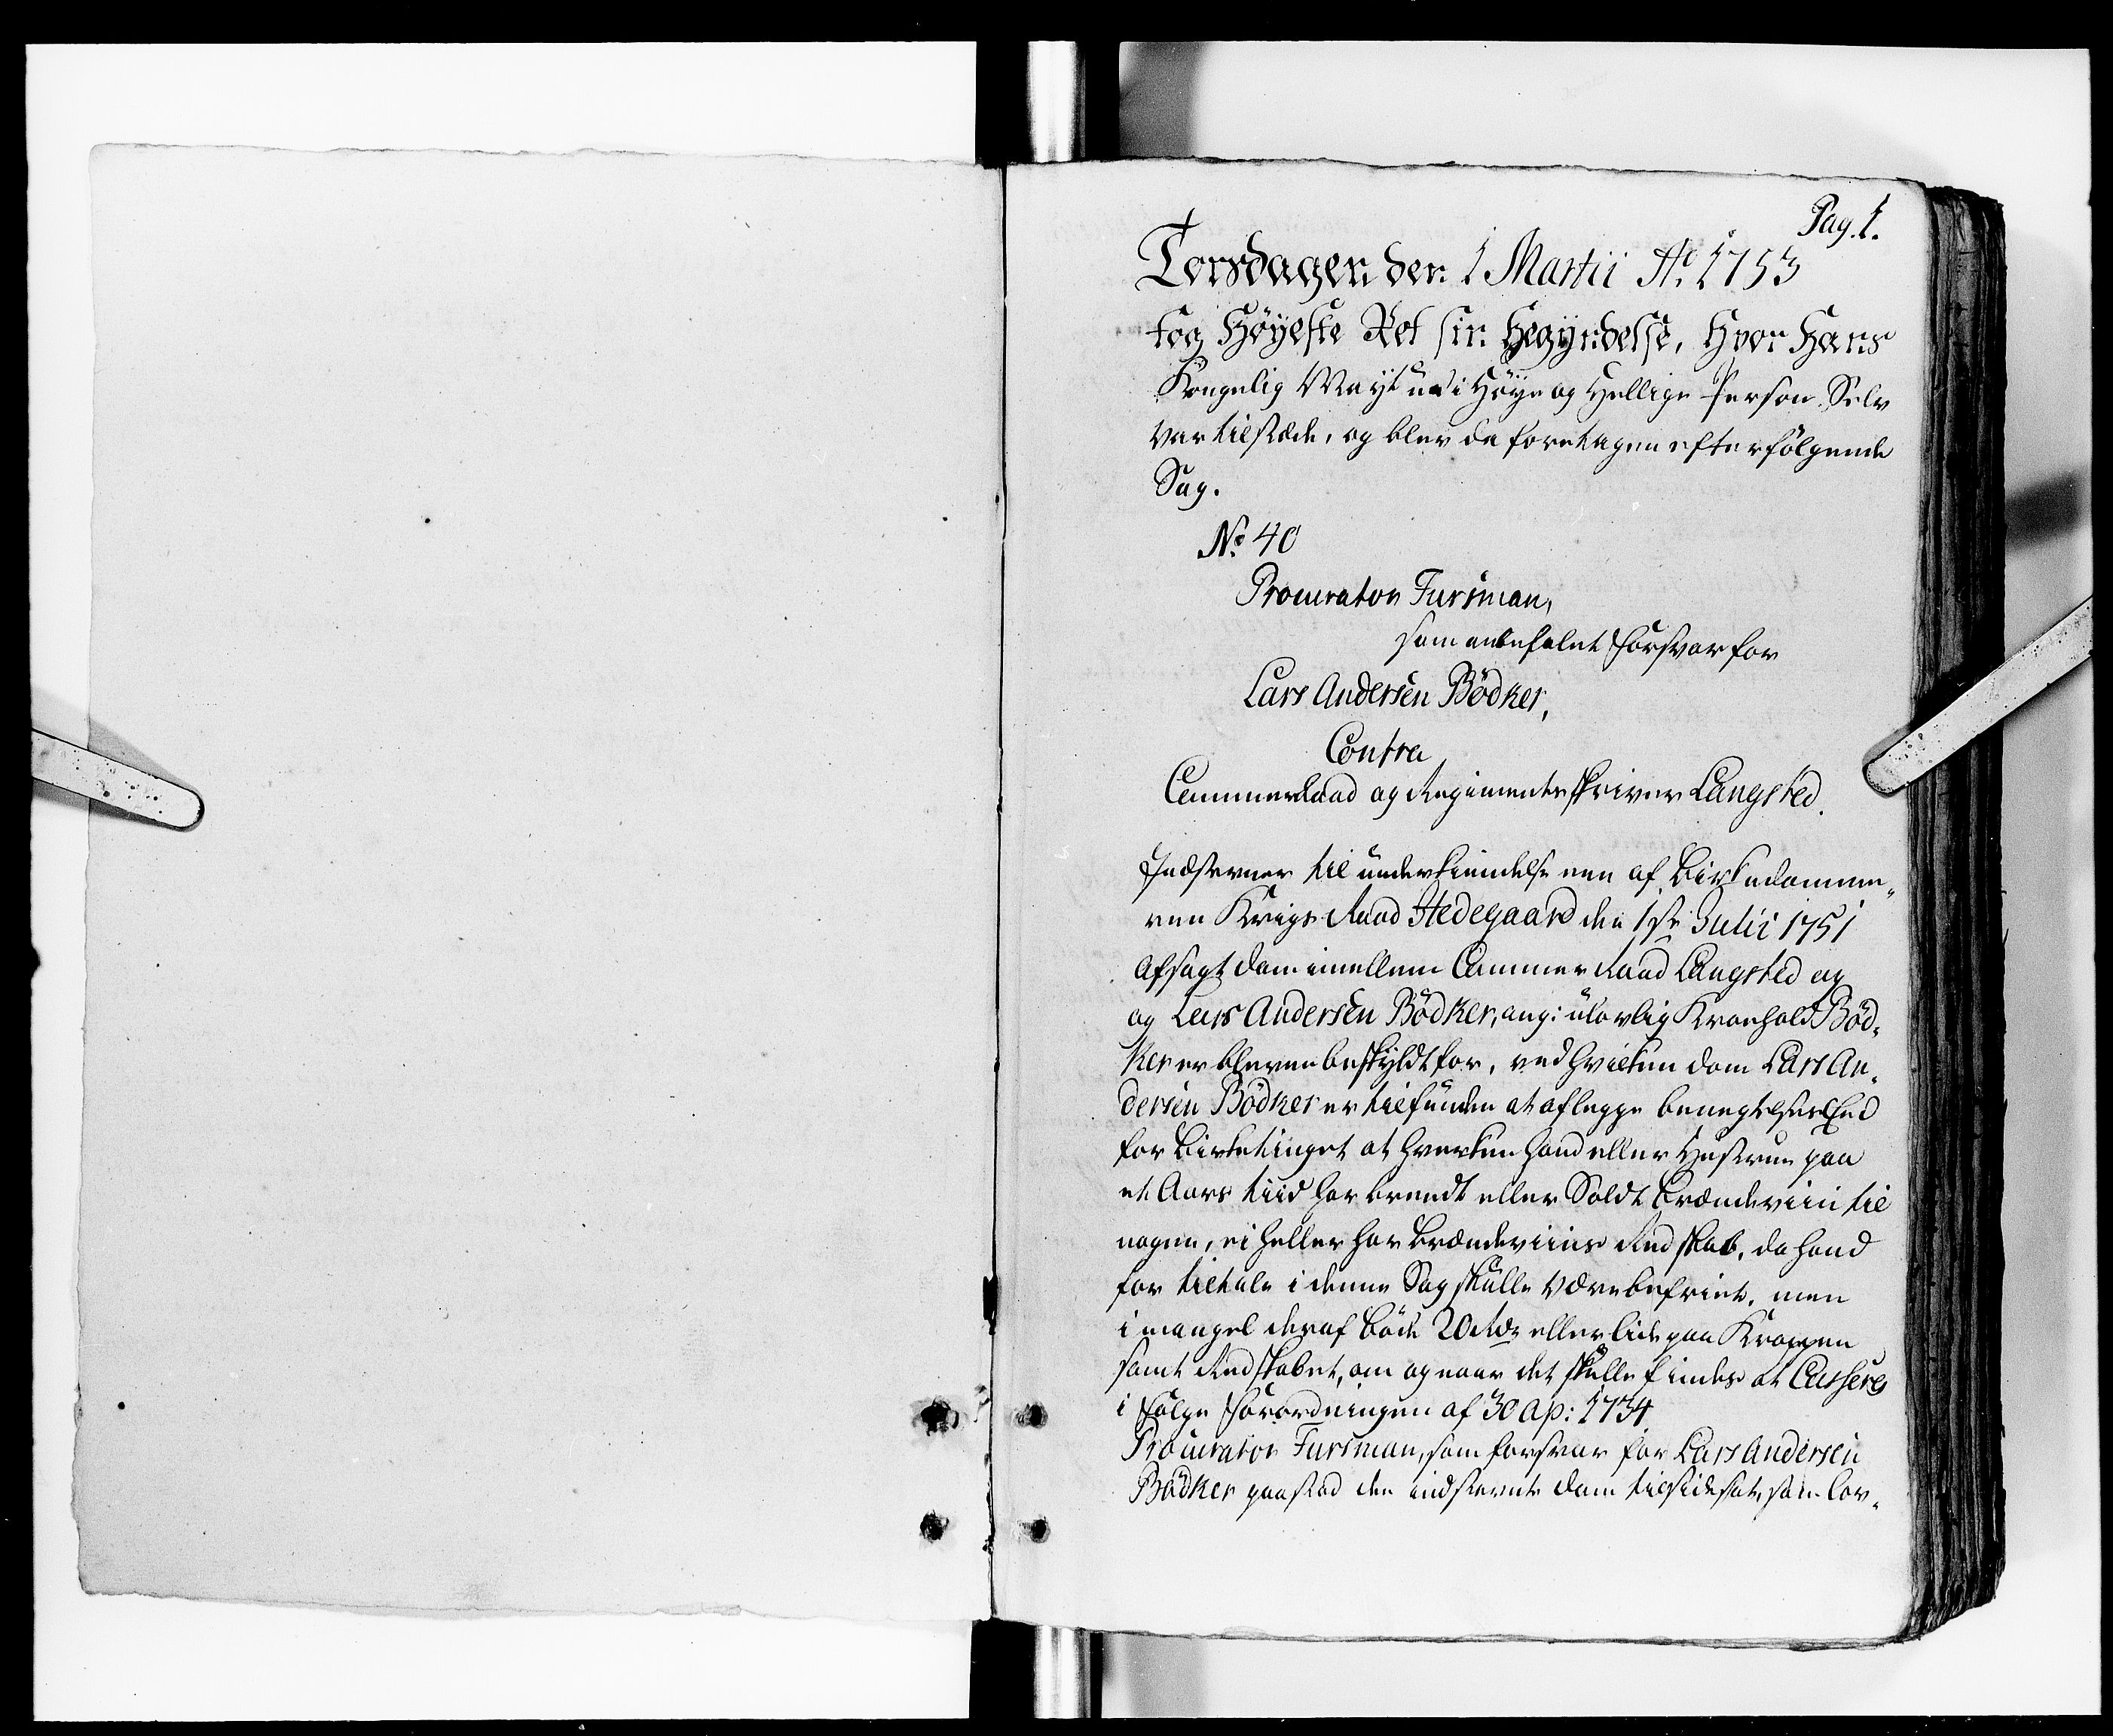 Pag. 1.
Torsdagen den 1 Martii Ao. 1753
tog Høyeste Ret sin Begyndelse, hvor Hans
Kongelig Mayt udi Høye og Hellige Person Selv
var tilstæde, og blev da foretagen efterfølgende
Sag.
No. 40
Procurator Fursman,
som anbefalet Forsvar for
Lars Andersen Bödker,
Contra
CammerRaad og Regimentskriver Langsted.
Indstevner til underkiendelse een af Birkedomme„
ren Krigs Raad Hedegaard den 1ste Julii 1751
afsagt dom imellem Cammer Raad Langsted og
og Lars Andersen Bödker, ang: ulovlig Kroehold Bød„
ker er bleven beskyldt for, ved hvilken dom Lars An„
dersen Bödker er tilfunden at aflegge benegtelses Eed
for Birketinget at hverken hand eller Hustrue paa
et Aars tiid har brendt eller Soldt brændeviin til
nogen, ei heller har brændeviins Redskab, da hand
for tiltale i denne Sag skulle være befriet, men
i mangel deraf bøde 20 Rdr eller lide paa Kroppen
samt Redskabet, om og naar det skulle findes at Casseres
i følge Forordningen af 30 ap: 1734
Procurator Fursman, som forsvar for Lars Andersen
Bödker paastod den indstevnte dom tilsidesat, som lov„